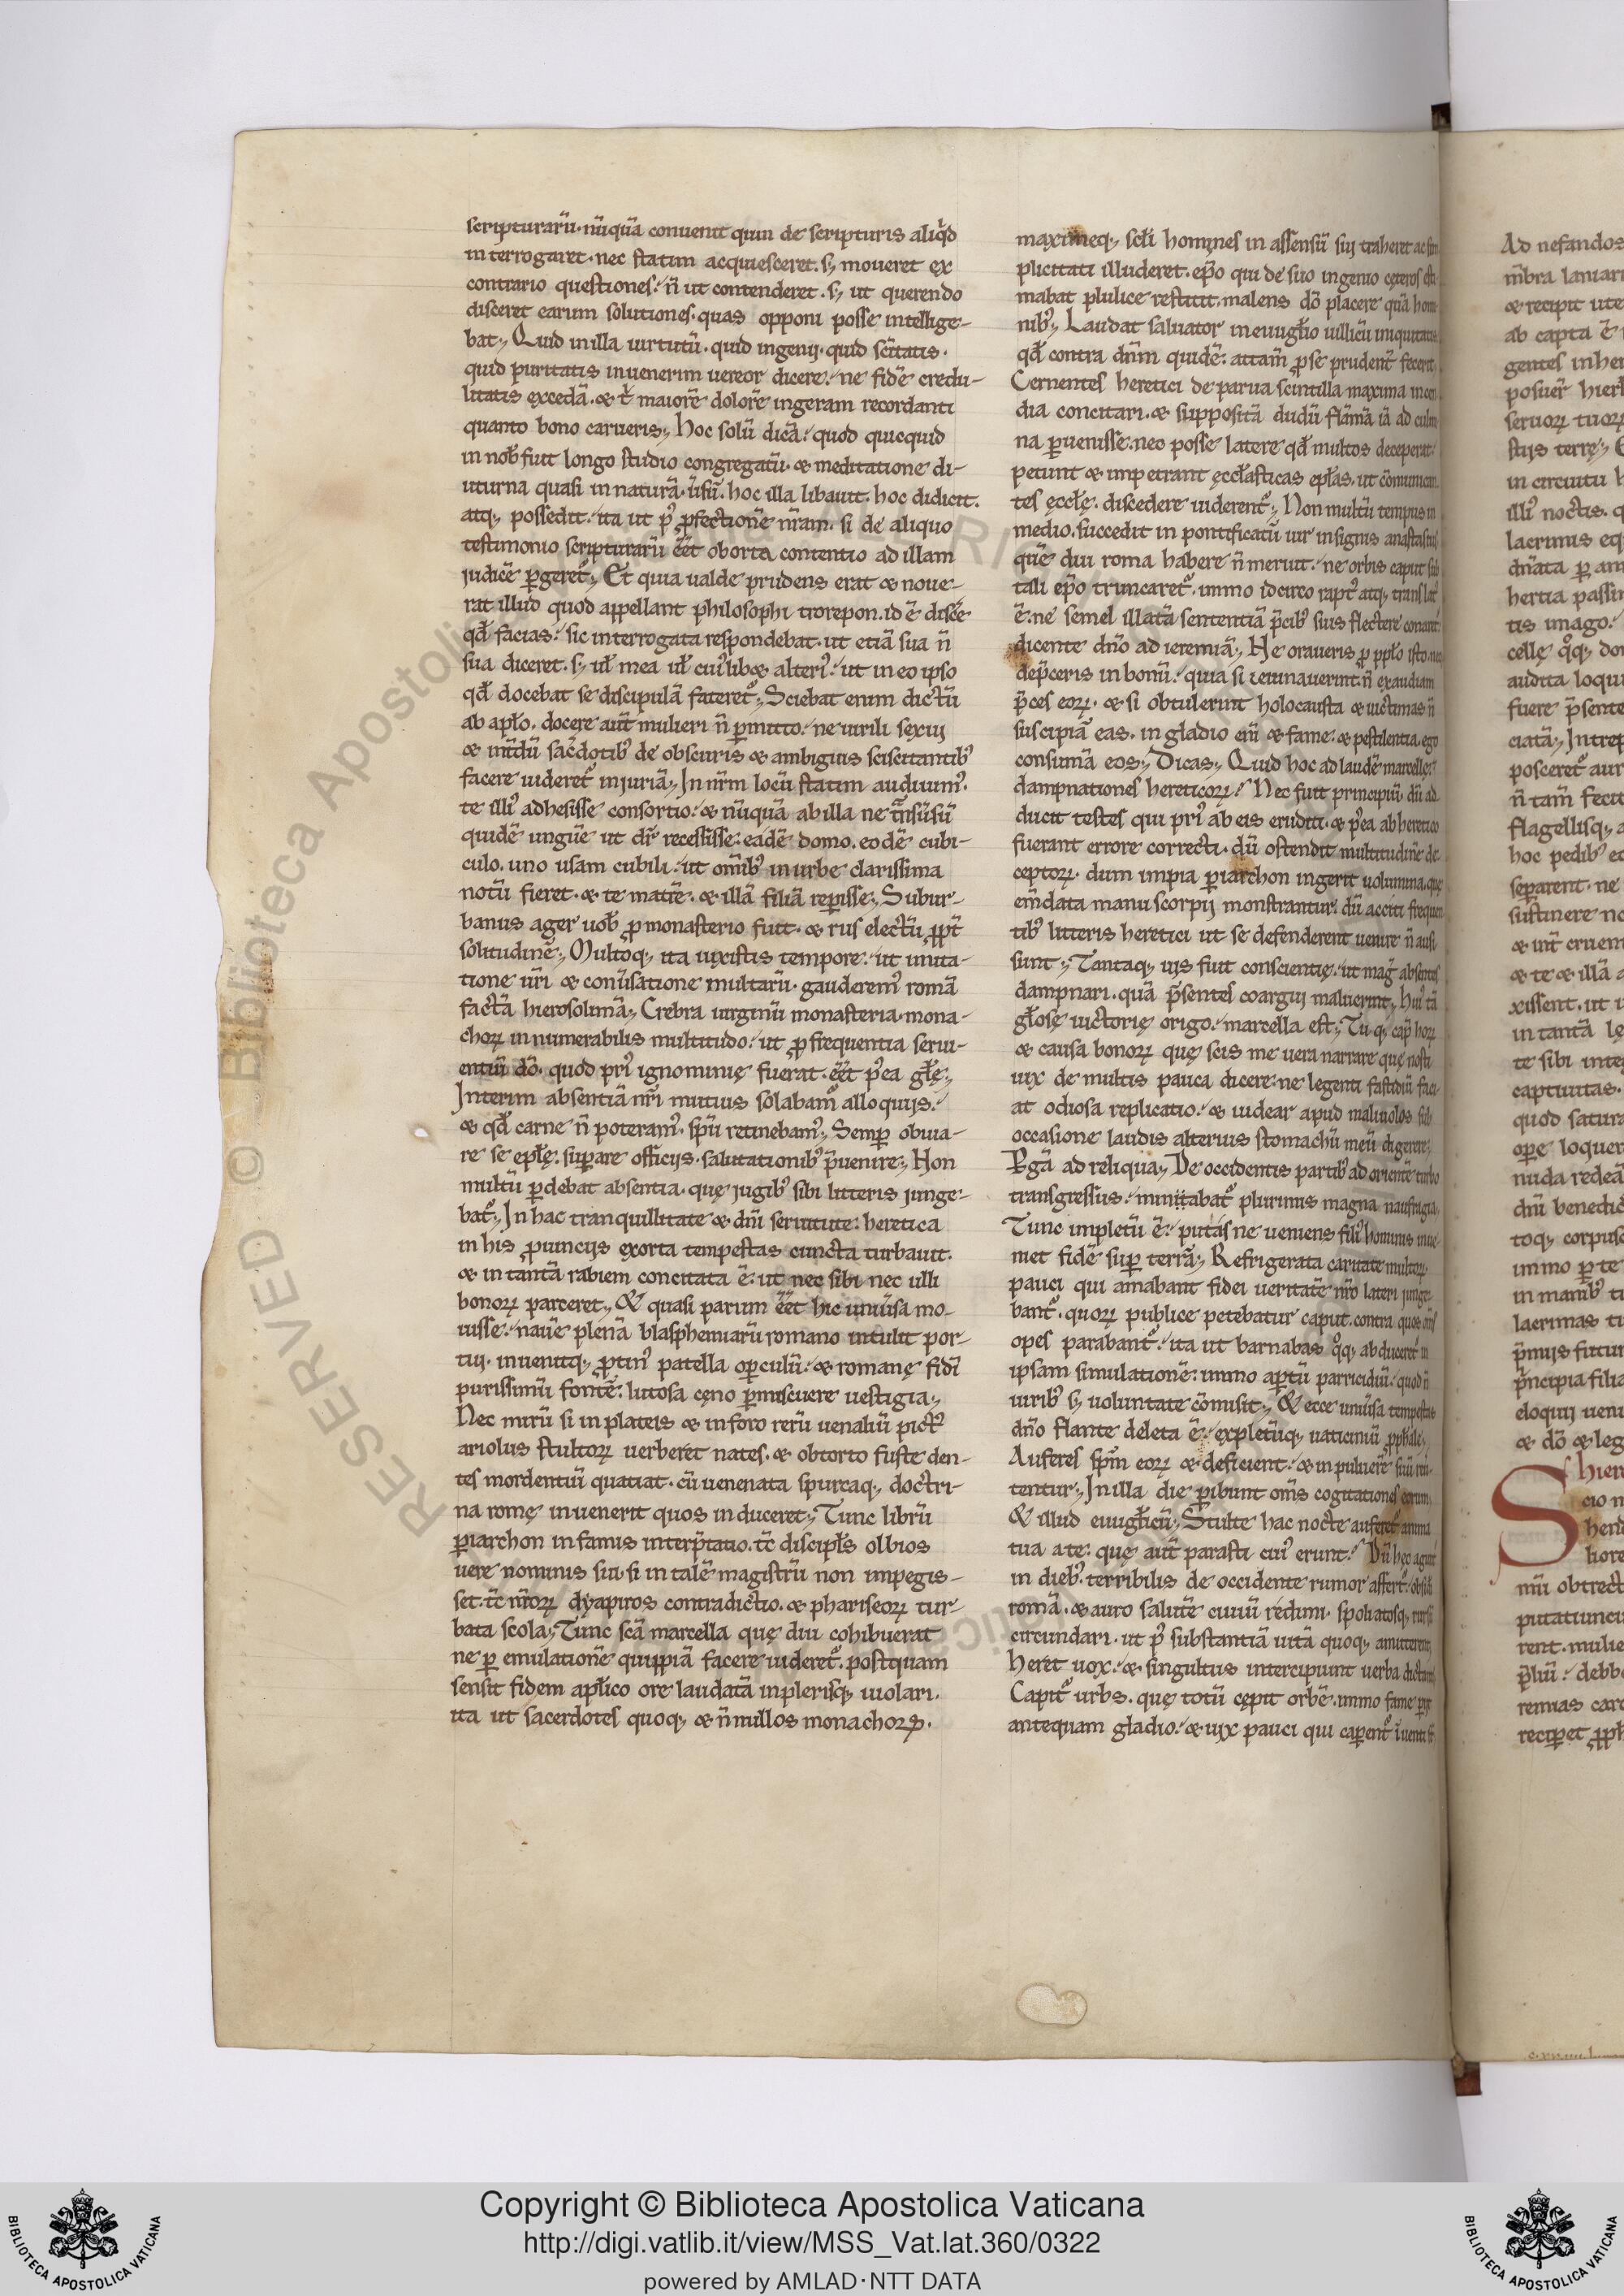 scripturarū. nūquā conuenit quin de scripturis aliqͥd
interrogaret. nec statim acquiesceret. sꝫ moueret ex
contrario questiones. n̄ ut contenderet. sꝫ ut querendo
disceret earum solutiones. quas opponi posse intellige-
bat. Quid in illa uirtutū. quid ingenij. quid sc̄itatis.
quid puritatis inuenerim uereor dicere. ne fidē credu-
litatis excedā. & t̄ maiorē dolorē ingeram recordanti
quanto bono carueris. hoc solū dicā. quod quicquid
in nob̄ fuit longo studio congregatū. & meditatione di-
uturna quasi in naturā. ūsū. hoc illa libauit. hoc didicit.
atqꝫ possedit. ita ut pꝰ ꝓfectionē nr̄am. si de aliquo
testimonio scripturarū eēt oborta contentio ad illam
judicē ꝑgeret᷑. Et quia ualde prudens erat & noue-
rat illud quod appellant philosophi trorepon. id ē discē
qd̄ facias. sic interrogata respondebat. ut etiā sua n̄
sua diceret. sꝫ ul̄ mea ul̄ cuiꝰlibꝫ alteriꝰ. ut in eo ipso
qd̄ docebat se discipulā fateret᷑. Sciebat enim dictū
ab apl̄o. docere aut̄ mulieri n̄ ꝑmitto. ne uirili sexui
& int̄dū sac̄dotibꝰ de obscuris & ambiguis sciscitantibꝰ
facere uideret᷑ injuriā. In nr̄m locū statim audiuimꝰ.
te illiꝰ adhesisse consortio. & nūquā ab illa ne tn̄suūsū
quidē unguē ut dr̄ recessisse. eadē domo. eodē cubi-
culo. uno usam cubili. ut om̄ibꝰ in urbe clarissima
notū fieret. & te matrē. & illā filiā repisse. Subur-
banus ager uob̄ ꝓ monasterio fuit. & rus electū ꝓpt̄
solitudinē. Multoqꝫ ita uixistis tempore. ut imita-
tione ur̄i & conūsatione multarū. gauderemꝰ romā
factā hierosolimā. Crebra uirginū monasteria. mona-
choꝝ innumerabilis multitudo. ut ꝓ frequentia serui-
entiū dō. quod priꝰ ignominię fuerat. eēt pꝰea gl̄ę.
Interim absentiā nr̄i mutuis solabam᷑ alloquijs.
& qd̄ carne n̄ poteramꝰ. spū retinebamꝰ. Semp̄ obuia-
re se epl̄ę. suꝑare officijs. salutationibꝰ p̄uenire. Non
multū ꝑdebat absentia. quę jugibꝰ sibi litteris junge-
bat᷑. In hac tranquillitate & dn̄i seruitute. heretica
in his ꝓuincijs exorta tempestas cuncta turbauit.
& in tantā rabiem concitata ē. ut nec sibi nec ulli
bonoꝝ parceret. & quasi parum eēt hic uniūsa mo-
uisse. nauē plenā blasphemiarū romano intulit por-
tui. inuenitqꝫ ꝓtinꝰ patella oꝑculū. & romanę fidi
purissimū fontē. lutosa cęno ꝑmiscuere uestigia.
Nec mirū si in plateis & in foro rerū uenaliū pict᷑
ariolus stultoꝝ uerberet nates. & obtorto fuste den-
tes mordentiū quatiat. cū uenenata spurcaqꝫ doctri-
na romę inuenerit quos induceret. Tunc librū
ꝑiarchon infamis interp̄tatio. tc̄ discipl̄s olbios
uere nominis sui. si in talē magistrū non impegis-
set. tc̄ nr̄oꝝ dyapiros contradictio. & phariseoꝝ tur-
bata scola. Tunc sc̄a marcella que diu cohibuerat
ne ꝑ emulationē quippiā facere uideret᷑. postquam
sensit fidem apl̄ico ore laudatā in plerisqꝫ uiolari.
ita ut sacerdotes quoqꝫ & n̄nullos monachoꝝ.
maximeqꝫ scl̄i homines in assensū sui traheret ac sim
plicitati illuderet. epō qui de suo ingenio ceteros esti
mabat plulice restitit. malens dō placere quā homi
nibꝰ. Laudat saluator in euugl̄io uillicū iniquitatis
qd̄ contra dn̄m quidē. attam̄ ꝓ se prudent̄ fecerit
Cernentes heretici de parua scintilla maxima incen
dia concitari. & suppositā dudū flāmā iā ad culmi
na ꝑuenisse. nec posse latere qd̄ multos deceperat.
petunt & impetrant ęccl̄asticas epl̄as. ut cōmunican
tes ęccl̄ę. discedere uiderent᷑. Non multū tempus in
medio. succedit in pontificatū uir insignis anastasius
quē diu roma habere n̄ meruit. ne orbis caput sub
tali epō truncaret᷑. immo idcirco rapt᷑ atqꝫ translat᷑
ē. ne semel illatā sententiā p̄cibꝰ suis flectere conaret᷑.
dicente dn̄o ad ieremiā. Ne oraueris ꝓ ppl̄o isto. nec
dep̄ceris in bonū. quia si ieiunauerint n̄ exaudiam
p̄ces eoꝝ. & si obtulerint holocausta & uictimas n̄
suscipiā eas. in gladio em̄ & fame. & pestilentia. ego
consumā eos. Dicas. Quid hoc ad laudē marcelle.
dampnationes hereticoꝝ. Nec fuit principiū. dū ad
ducit testes qui priꝰ ab eis eruditi. & pꝰea ab heretico
fuerant errore correcti. dū ostendit multitudinē de
ceptoꝝ. dum impia ꝑiarchon ingerit uolumina. que
em̄data manu scorpij monstrantur. dū acciti frequen
tibꝰ litteris heretici ut se defenderent uenire n̄ ausi
sunt. Tantaqꝫ uis fuit conscientię. ut maḡ absentes
dampnari. quā p̄sentes coargui maluerint. huiꝰ tā
gl̄osę uictorię origo. marcella est. Tu qꝫ cap̄ hoꝝ
& causa bonoꝝ quę scis me uera narrare quę nosti
uix de multis pauca dicere. ne legenti fastidiū faci
at odiosa replicatio. & uidear apud maliuolos sub
occasione laudis alterius stomachū meū digerere.
Pgā ad reliqua. De occidentis partibꝰ ad orientē turbo
transgressus. minitabat᷑ plurimis magna naufragia
Tunc impletū ē. putas ne ueniens filiꝰ hominis inue
niet fidē suꝑ terrā. Refrigerata caritate multoꝝ.
pauci qui amabant fidei ueritatē. nr̄o lateri junge
bant᷑. quoꝝ publice petebatur caput. contra quos om̄s
opes parabant᷑. ita ut barnabas qͦqꝫ abduceret᷑ in
ipsam simulationē. immo aꝑtū parricidiū. quod n̄
uiribꝰ sꝫ uoluntate cōmisit. & ecce uniūsa tempestas
dn̄o flante deleta ē. expletūqꝫ uaticiniū ꝓphale.
Auferes spm̄ eoꝝ & deficient. & in puluerē suū reu-
tentur. In illa die ꝑibunt om̄s cogitationes eorum.
& illud euugl̄icū. Stulte hac nocte auferet᷑ anima
tua a te. quę aut̄ parasti cuiꝰ erunt. Dū hec agunt᷑
in diebꝰ. terribilis de occidente rumor affert᷑. obsidi
romā. & auro salutē ciuiū redimi. spoliatosqꝫ rursū
circundari. ut pꝰ substantiā uitā quoqꝫ amitterent
heret uox. & singultus intercipiunt uerba dictantis
Capit᷑ urbs. quę totū cępit orbē. immo fame ꝑit
antequam gladio. & uix pauci qui caperent᷑ īuenti s̄t
Ad nefandos
ab capta ē
seruoꝝ tuoꝝ
in circuitu
illiꝰ noctis.
dn̄ata ꝑ am
tis imago.
audita loqui
fuere p̄sente
ciatā. Intrep
posceret᷑ aur
n̄ tam̄ fecit
flagellisqꝫ
hoc pedibꝰ
separent. ne
sustinere no
& te & illā
xissent. ut
te sibi inte
captiuitas.
quod satura
ope loquer
nuda redeā
dn̄i benedic
toqꝫ corpus
immo ꝑ te
in manibꝰ
lacrimas
p̄mijs futur
p̄ncipia filia
eloquij ueni
& dō & leg
S hier
cio n
hend
liore
mū obtrect
putatiuncu
rent. mulie
p̄liū. debbo
remias carc
recipet ꝓph
Copyright © Biblioteca Apostolica Vaticana
http://digi.vatlib.it/view/MSS_Vat.lat.360/0322
powered by AMLAD·NTT DATA
BIBLIOTECA APOSTOLICA VATICANA
BIBLIOTECA APOSTOLICA VATICANA
RESERVED © Biblioteca Apostolica Vaticana